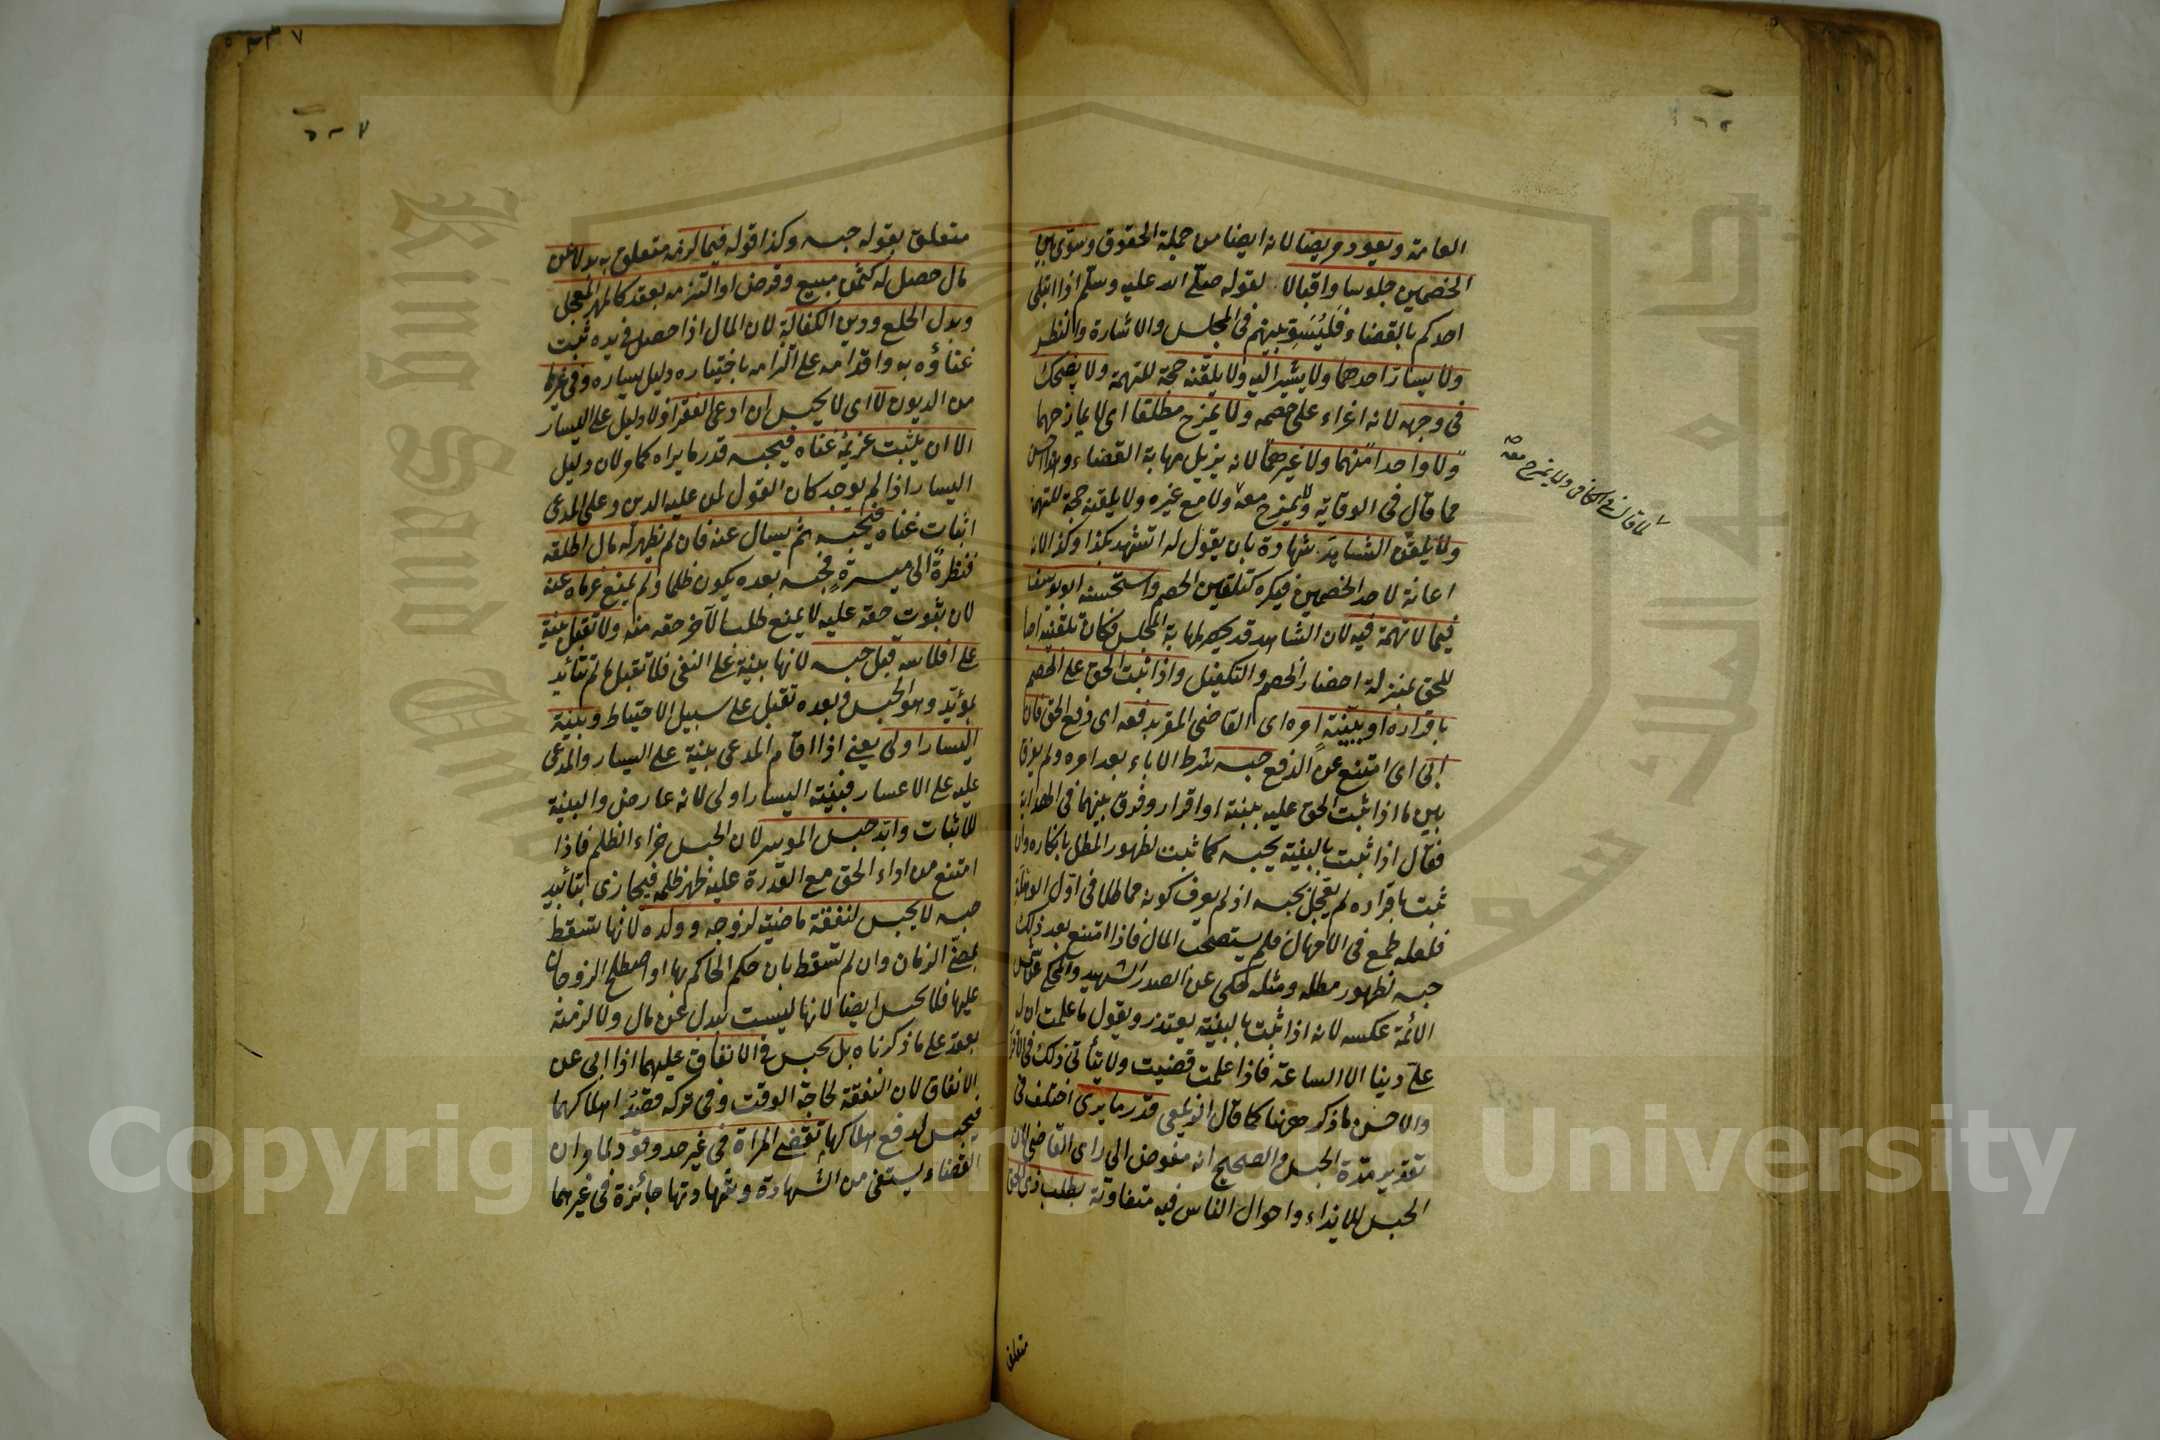 العامة ويعود مريضا لانه ايضا من جملة الحقوق وسوّى بين
الخصمين جلوسا واقبالا لقوله صلّى الله عليه وسلّم اذا ابتلى
احدكم بالقضاء فَليُسَوِّ بينهم فى المجلس والاشارة والنظر
ولا يسارّ احدهما ولا يشير اليه ولا يلقنه حجة للتهمة ولا يضحك
فى وجهه لانه اغراء على خصمه ولا يمزح مطلقا اى لا يمازحهما
ولا واحدا منهما ولا غيرهما لانه يزيل مهابة القضاء وهذا احسن
مما قال فى الوقاية ولا يمزح معه ولا مع غيره ولا يلقنه حجة للتهمة
ولا يلقّن الشاهد شهادة بان يقول له اتشهد بكذا وكذا لانه
اعانة لاحد الخصمين فيكره كتلقين الخصم واستحسنه ابو يوسف
فيما لا تهمة فيه لان الشاهد قد يحصر لمهابة المجلس فكان تلقينه احيا
للحق بمنزلة احضار الخصم والتكفيل واذا ثبت الحق على الخصم
باقراره او ببيّنةٍ امره اى القاضى المقر بدفعه اى دفع الحق فان
ابى اى امتنع عن الدفع حبسه شرط الاباء بعد امره ولم يفرق
بين ما اذا ثبت الحق عليه ببينة او اقرار وفرق بينهما فى الهداية
فقال اذا ثبت بالبينة يحبسه كما ثبت لظهور المطل بانكاره وان
ثبت باقراره لم يعجل بحبسه اذ لم يعرف كونه مماطلا فى اول الوهلة
فلعله طمع فى الامهال فلم يستصحب المال فاذا امتنع بعد ذلك
حبسه لظهور مطله ومثله حكى عن الصدر الشهيد والمحكى عن شمس
الائمة عكسه لانه اذا ثبت بالبينة يعتذر ويقول ما علمت ان له
علىّ دينا الا الساعة فاذا علمت قضيت ولا يتأتى ذلك فى الاقرار
والاحسن ما ذكر ههنا كما قال الزيلعى قدر ما يرى اختلف فى
تقدير مدة الحبس والصحيح انه مفوض الى راى القاضى لان
الحبس للايذاء واحوال الناس فيه متفاوتة بطلب ذى الحق
متعلق
متعلق بقوله حبسه وكذا قوله فيما لزمه متعلق به بدلا عن
مال حصل له كثمن مبيع وقرض او التزمه بعقد كالمهر المعجل
وبدل الخلع ودين الكفالة لان المال اذا حصل فى يده ثبت
غناؤه به واقدامه على التزامه باختياره دليل يساره وفى غيرها
من الديون لا اى لا يحبس ان ادعى الفقر اذ لا دليل على اليسار
الا ان يثبت غريمه غناه فيحبسه قدر ما يراه كما مر لان دليل
اليسار اذا لم يوجد كان القول لمن عليه الدين وعلى المدعى
اثبات غناه فيحبسه ثم يسال عنه فان لم يظهر له مال اطلقه
فنظرةٌ الى ميسرةٍ فحبسه بعده يكون ظلما ولم يمنع غرماه عنه
لان ثبوت حقه عليه لا يمنع طلب الآخر حقه منه ولا تقبل بينة
على افلاسه قبل حبسه لانها بينة على النفى فلا تقبل ما لم تتأيد
بمؤيّد وهو الحبس وبعده تقبل على سبيل الاحتياط وبينة
اليسار اولى يعنى اذا اقام المدعى بينة على اليسار والمدعى
عليه على الاعسار فبينة اليسار اولى لانه عارض والبينة
للاثبات وابّد حبس الموسر لان الحبس جزاء الظلم فاذا
امتنع من اداء الحق مع القدرة عليه ظهر ظلمه فيجازى بتأبيد
حبسه لا يحبس لنفقة ماضية لزوجه وولده لانها تسقط
بمضىّ الزمان وان لم تسقط بان حكم الحاكم بها او اصطلح الزوجان
عليها فلا يحبس ايضا لانها ليست ببدل عن مال ولا لزمته
بعقد على ما ذكرناه بل يحبس فى الانفاق عليهما اذا ابى عن
الانفاق لان النفقة لحاجة الوقت وفى تركه قصد اهلاكهما
فيحبس لدفع اهلاكهما تقضى المرأة فى غير حد وقود لما مر ان
القضاء يستقى من الشهادة وشهادتها جائزة فى غيرهما